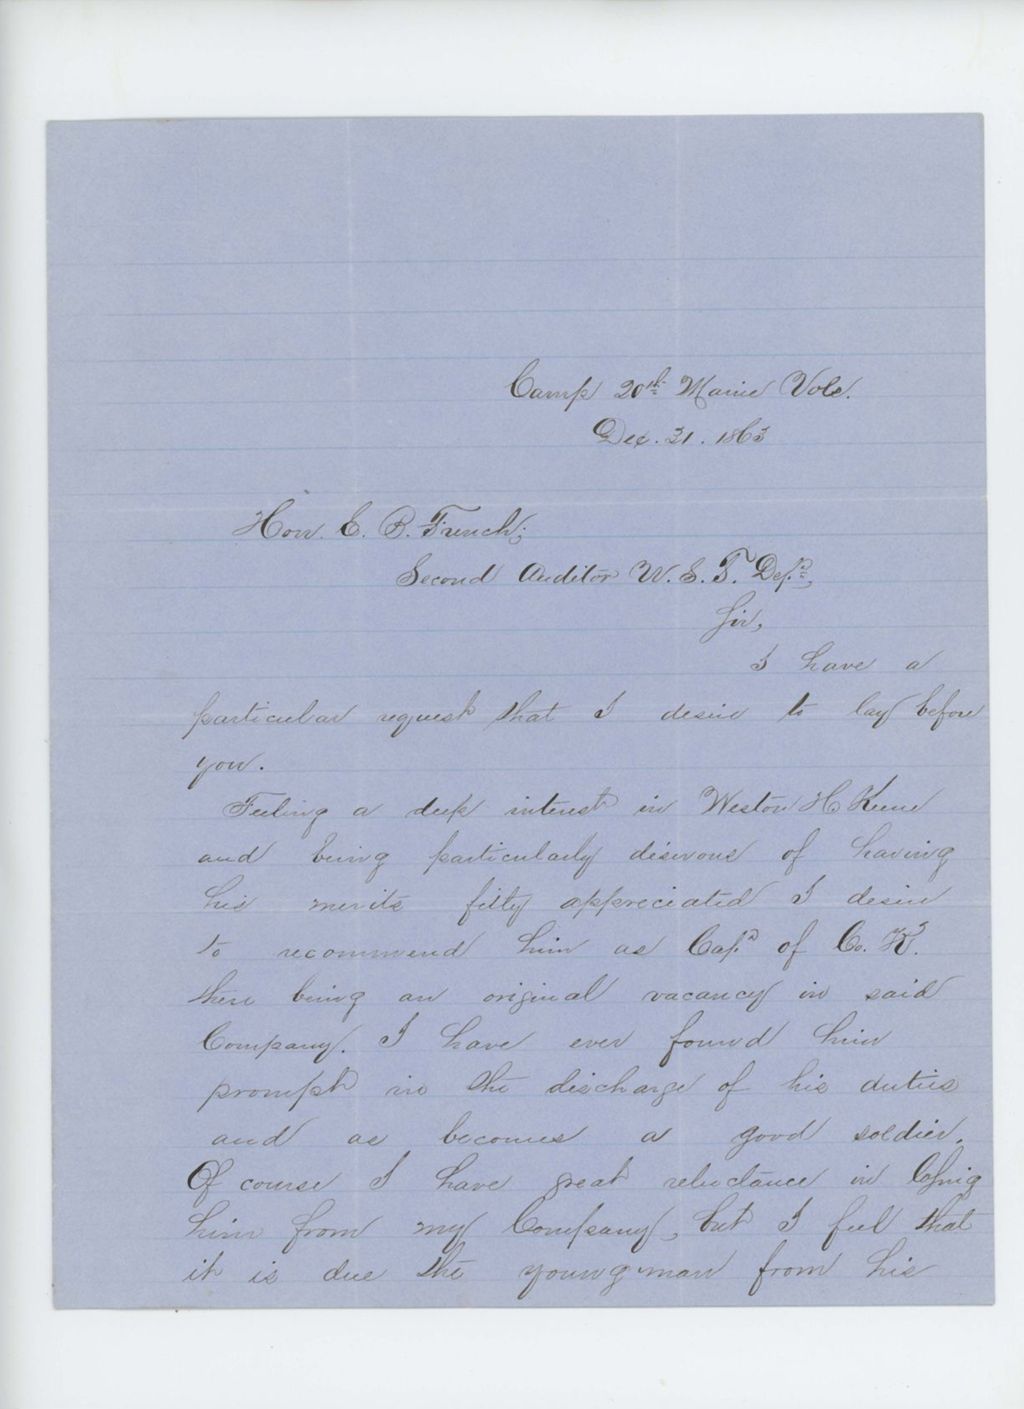 Camp 20th Maine Vols.
Dec. 31. 1863
Hon. E. B. French;
Second Auditor U. S. T. Dept.,
Sir,
I have a
particular request that I desire to lay before
you.
Feeling a deep interest in Weston H Keene
and being particularly desirous of having
his merits fitly appreciated I desire
to recommend him as Capt. of Co. K.
there being an original vacancy in said
Company. I have ever found him
prompt in the discharge of his duties
and as becomes a good soldier.
Of course I have great reluctance in losing
him from my Company, but I feel that
it is due the young man from his